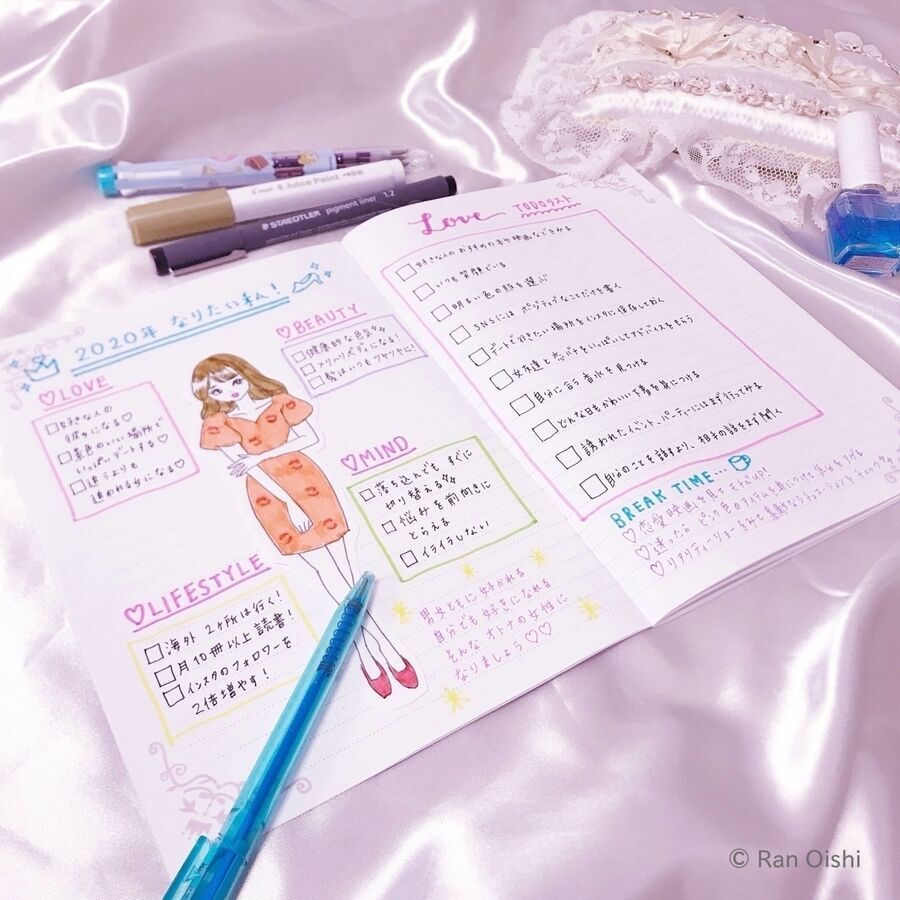 Juice Paint
STAEDTLER pigment liner 1.2
2020年 なりたい私!
♡LOVE
□好きな人の
彼女になる♡
□景色のいい場所で
いっぱいデートする♡
□追うよりも
追われる女になる♡
♡BEAUTY
□健康的な色気
□メリハリボディになる!
□髪はいつもツヤツヤに!
♡MIND
□落ち込んでも、すぐに
切り替える
□悩みを前向きに
とらえる
□イライラしない
♡LIFESTYLE
□海外 2ヶ所は行く!
□月10冊以上読書!
□インスタのフォロワーを
2倍増やす!
男女ともに好かれる
自分でも好きになれる
そんなオトナの女性に
なりましょう♡♡
Love TODOリスト
□好きな人のおすすめの本や映画などをみる
□いつも笑顔でいる
□明るい色の服を選ぶ
□SNSには ポジティブなことだけを書く
□デートで行きたい場所をインスタに保存しておく
□女友達と恋バナをいっぱいしてアドバイスをもらう
□自分に合う香水を見つける
□どんな日もかわいい下着を身につける
□誘われたイベント、パーティーにはまず行ってみる
□自分のことを話すより、相手の話をまず聞く
BREAK TIME...
♡恋愛映画を見て
♡迷ったら ピンク色のアイテムを身につけて
♡リアリティーショーをみて
© Ran Oishi